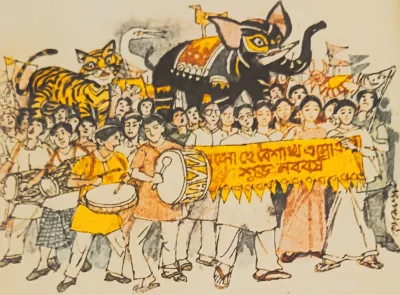 এসো হে বৈশাখ এসো
শুভ নববর্ষ